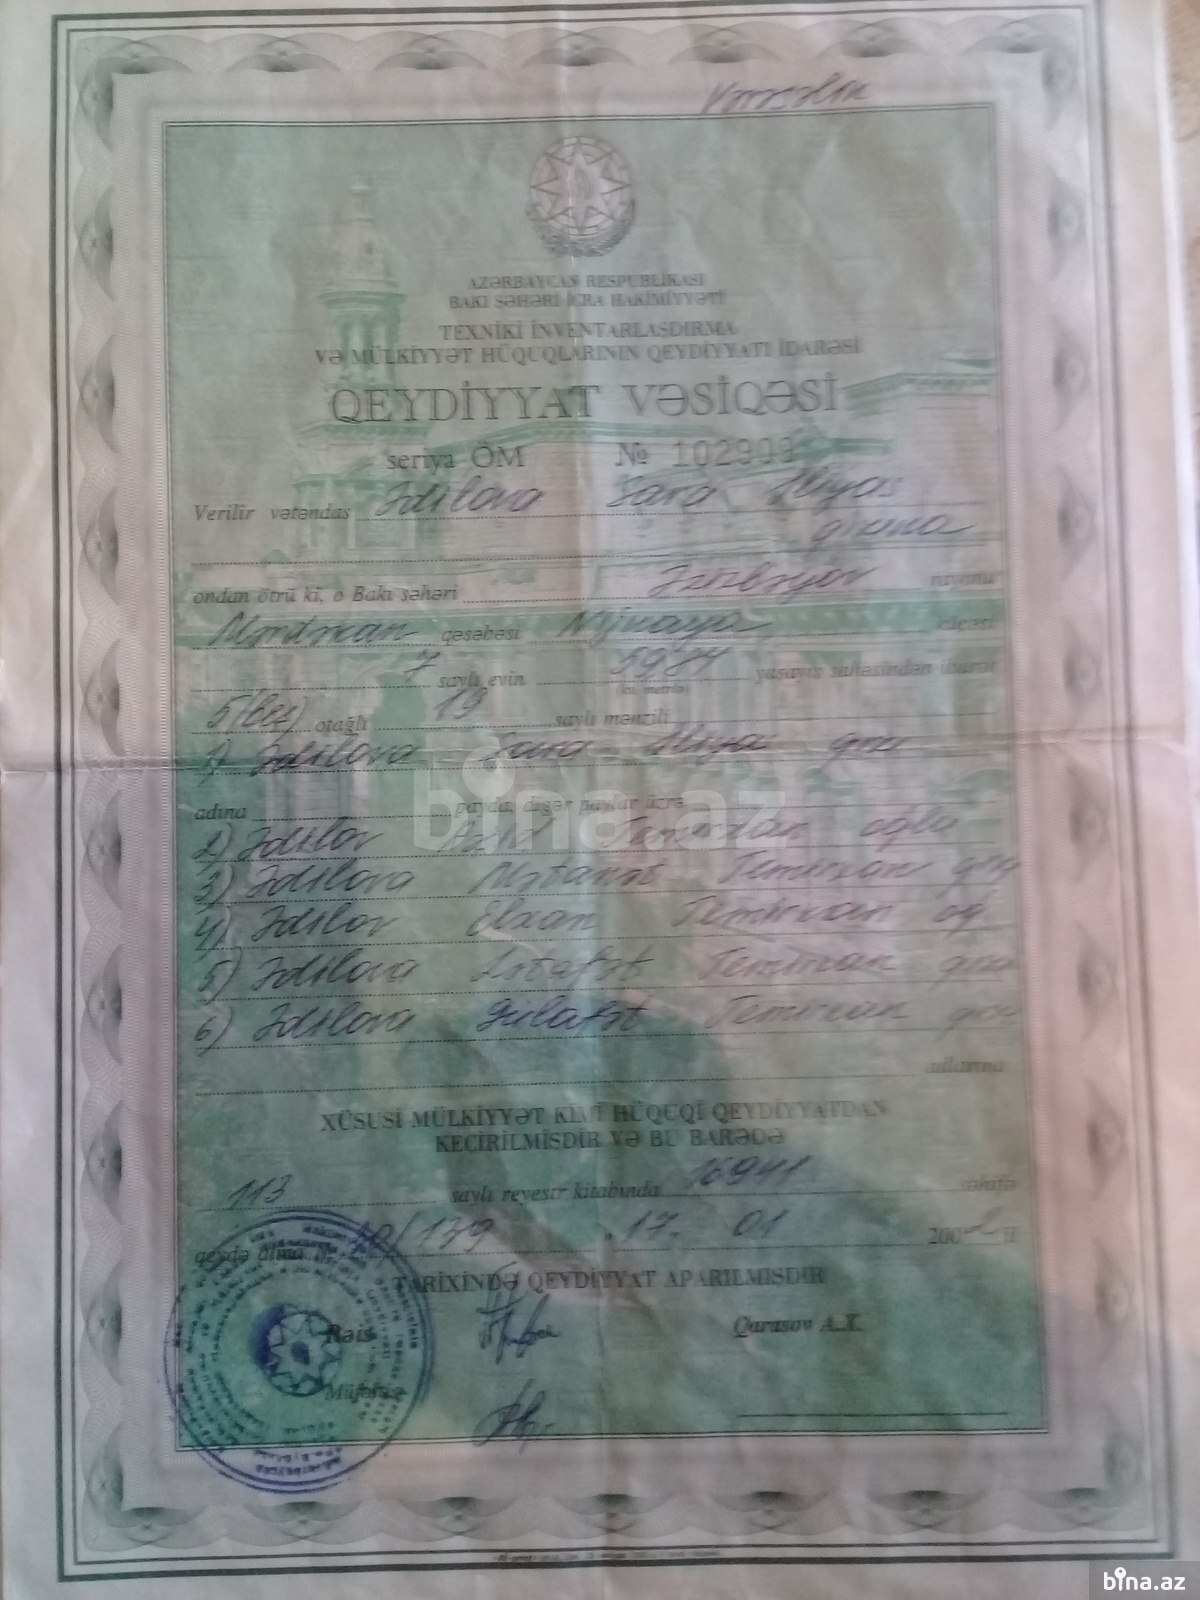 AZƏRBAYCAN RESPUBLİKASI
BAKI ŞƏHƏRİ İCRA HAKİMİYYƏTİ
TEXNİKİ İNVENTARLAŞDIRMA
VƏ MÜLKİYYƏT HÜQUQLARININ QEYDİYYATI İDARƏSİ
QEYDİYYAT VƏSİQƏSİ
seriya ÖM № 102909
Verilir vətəndaş Ədilova Sara İlyas
qızına
ondan ötrü ki, o Bakı şəhəri Əzizbəyov rayonu
Mərdəkan qəsəbəsi küçəsi
7 saylı evin 59,84 yaşayış sahəsindən ibarət
(kv. metrlə)
5(beş) otaqlı 19 saylı mənzili
1) Ədilova Sara İlyas qızı
adına payda, digər paylar üzrə
2) Ədilov oğlu
3) Ədilova Mətanət Temirxan
4) Ədilov Elxan Temirxan
5) Ədilova Lətafət Temirxan
6) Ədilova Gülafət Temirxan
adlarına
XÜSUSİ MÜLKİYYƏT KİMİ HÜQUQİ QEYDİYYATDAN
KEÇİRİLMİŞDİR VƏ BU BARƏDƏ
113 saylı reyestr kitabında 16941 səhifə
qeydə alma № 10/179 17. 01 200
TARİXİNDƏ QEYDİYYAT APARILMIŞDIR
Rəis Qarasov A.X.
Müfəttiş
bina.az
bina.az